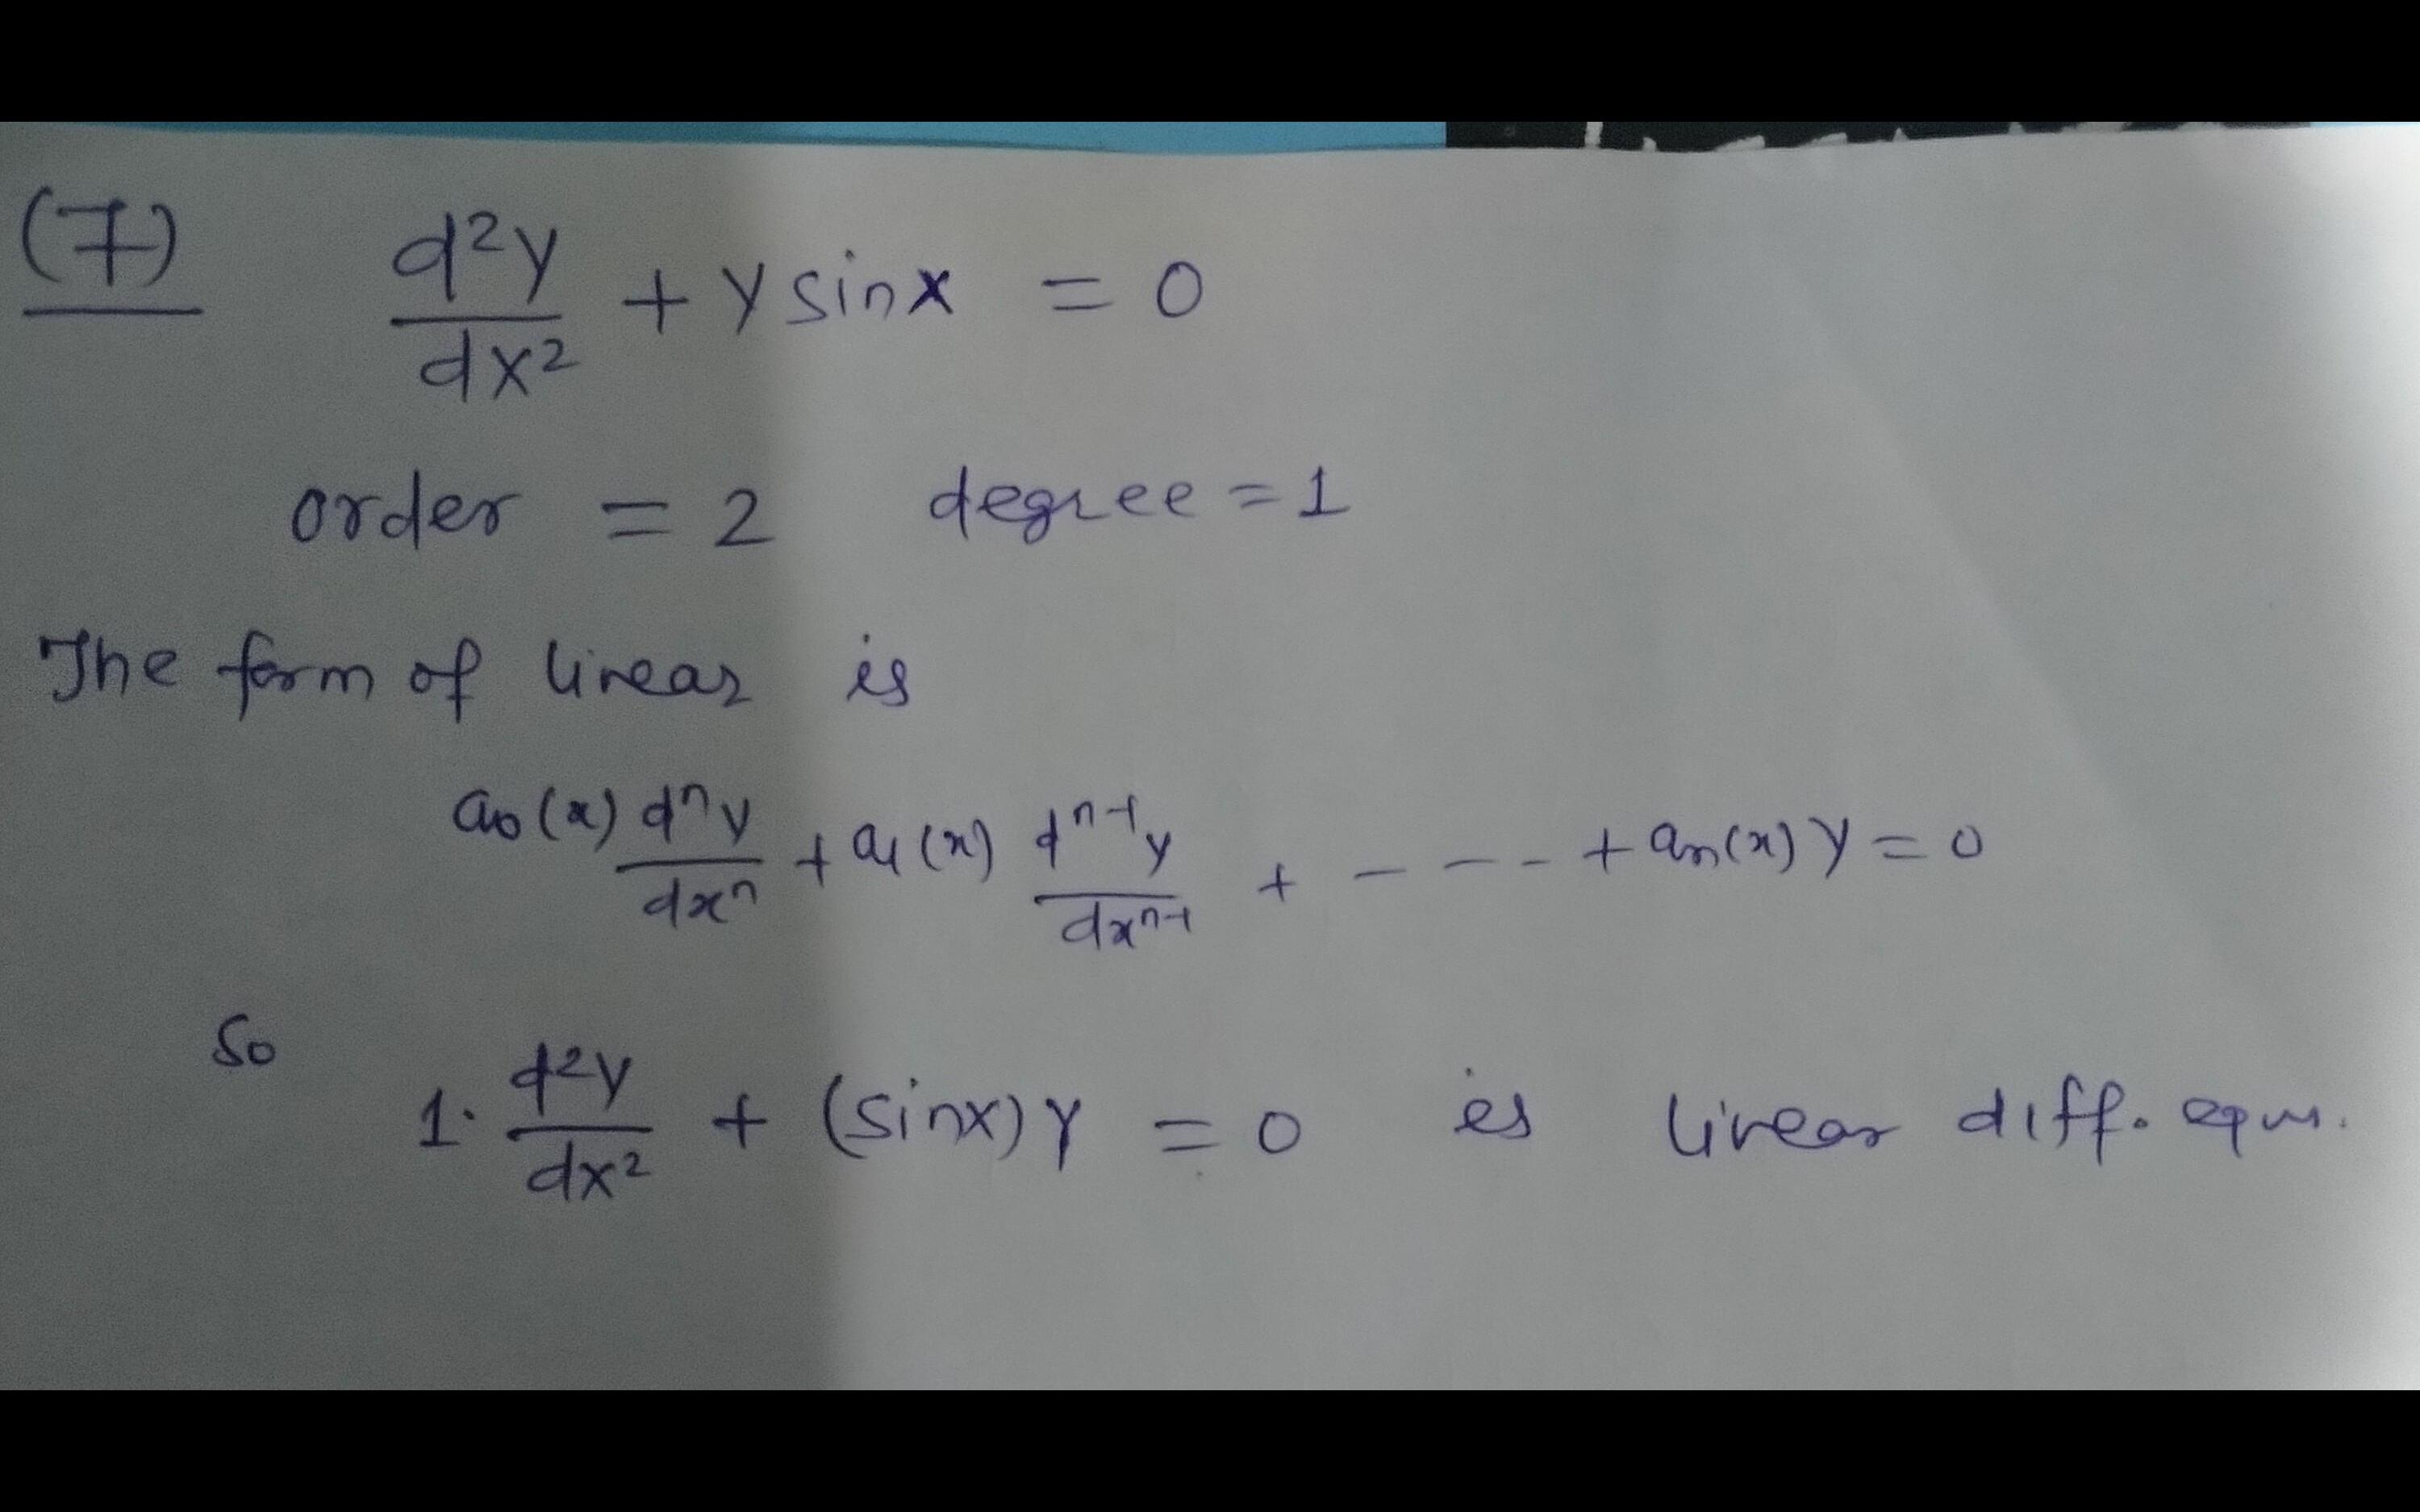 (7) d²y/dx² + y sinx = 0
order = 2 degree = 1
The form of linear is
a₀(x) dⁿy/dxⁿ + a₁(x) dⁿ⁻¹y/dxⁿ⁻¹ + - - - - + aₙ(x) y = 0
So 1. d²y/dx² + (sinx) y = 0 is linear diff. eqn.